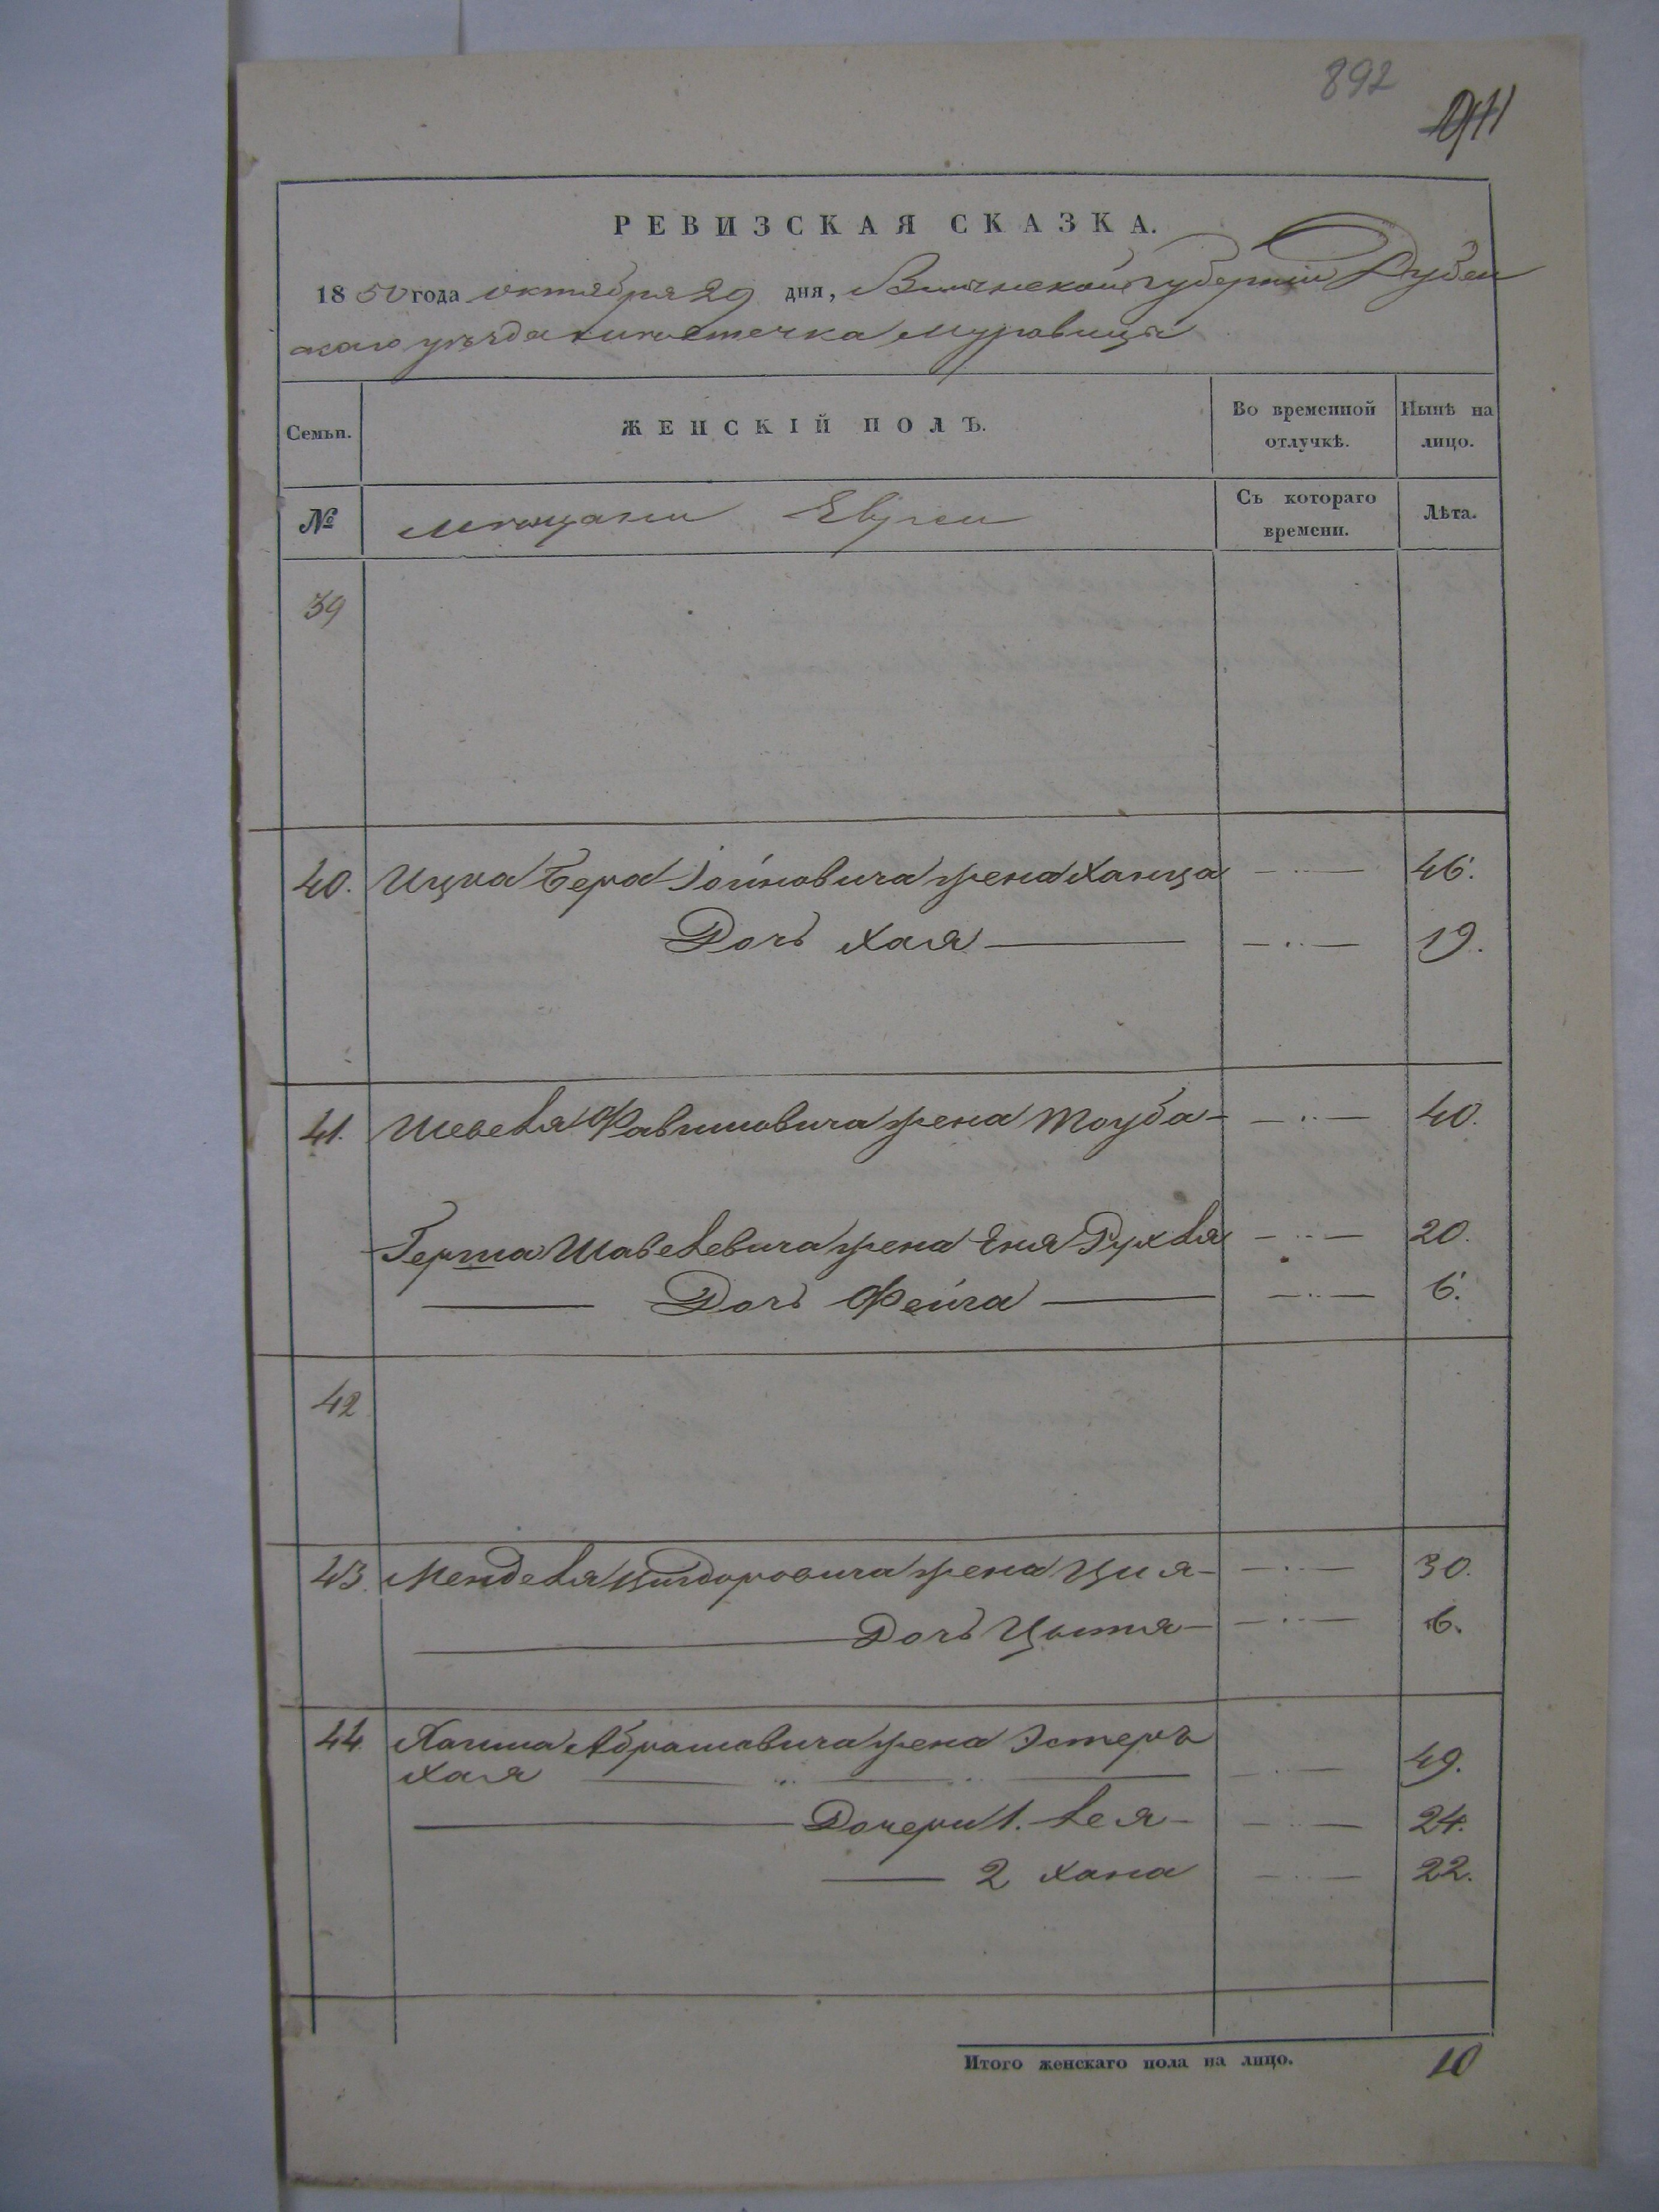 892
РЕВИЗСКАЯ СКАЗКА.
1850 года октября 29 дня, Волынской губернии Дубен
скаго уѣзда местечка Муровицы
Семьи. ЖЕНСКІЙ ПОЛЪ. Во временной отлучкѣ. Нынѣ на лицо.
№ Мещани Евреи Съ котораго времени. Лѣта.
39
40. Ицка Бера Іойновича жена Ханца — ·· — 46.
Дочь Хая — — ·· — 19.
41. Шевеля жена Тоуба — — ·· — 40.
Герша Шавелевича жена Еня Рухля — ·· — 20.
— Дочь Фейга — — ·· — 6.
42
43. Менделя жена Ция — — ·· — 30.
— Дочь — — ·· — 6.
44. Хаима Абрамовича жена Эстеръ
Хая — ·· — ·· — — ·· — 49.
— Дочери 1. Лея — — ·· — 24.
— 2 Хана — ·· — 22.
Итого женскаго пола на лицо. 10